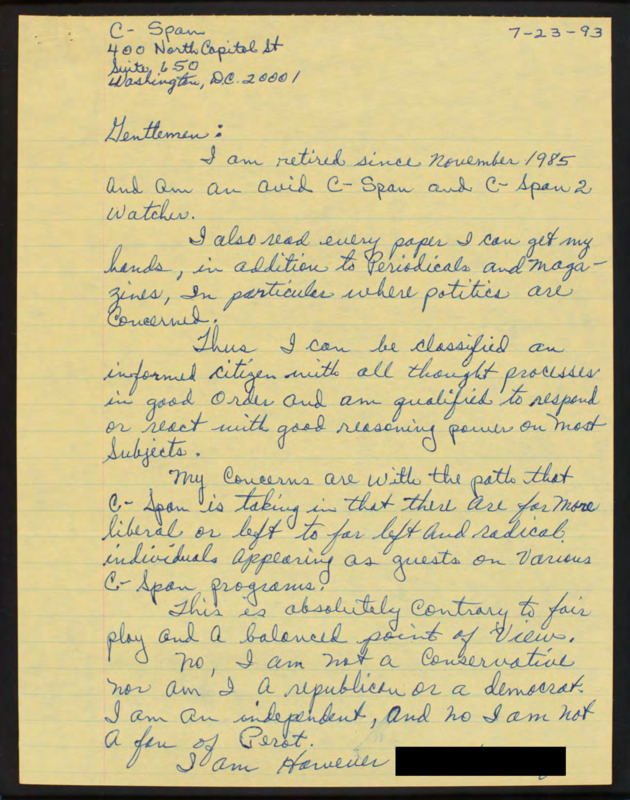 C- Span
7-23-93
400 North Capitol St
Suite 650
Washington, D.C. 20001
Gentlemen:
I am retired since November 1985
and am an avid C- Span and C- Span 2
Watcher.
I also read every paper I can get my
hands, in addition to Periodicals and Maga-
zines, in particular where politics are
Concerned.
Thus I can be classified an
informed citizen with all thought processes
in good order and am qualified to respond
or react with good reasoning power on most
Subjects.
My Concerns are with the path that
C- Span is taking in that there are far more
liberal or left to far left and radical
individuals appearing as guests on Various
C- Span programs.
This is absolutely Contrary to fair
play and a balanced point of View.
No, I am not a Conservative
nor am I a republican or a democrat.
I am an independent, and no I am not
a fan of Perot.
I am However